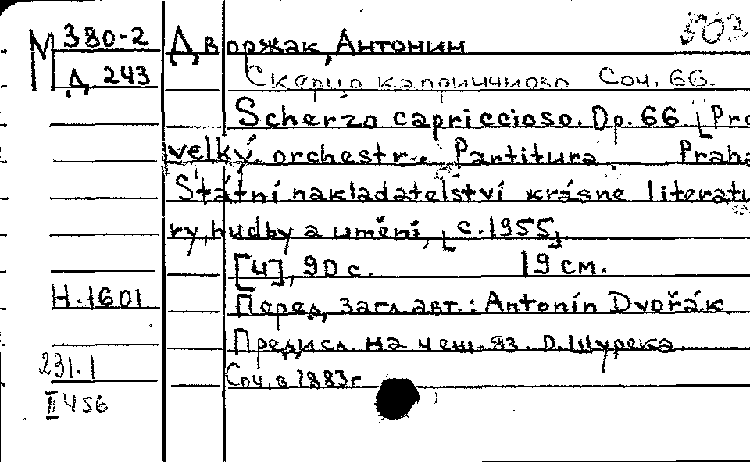 М 380-2
Д 243
503
Дворжак, Антонин
Скерцо каприччиозо Соч. 66.
Scherzo capriccioso. Op. 66. [Pro
velký orchestr. Partitura Praha
Státní nakladatelství krásne literatu
ry, hudby a umění, [c. 1955].
[4], 90 с. 19 см.
Н.1601
Перед загл. авт.: Antonín Dvořák
Предисл. на чеш. яз. О. Шурека
231.1
Соч. в 1883г
II 456